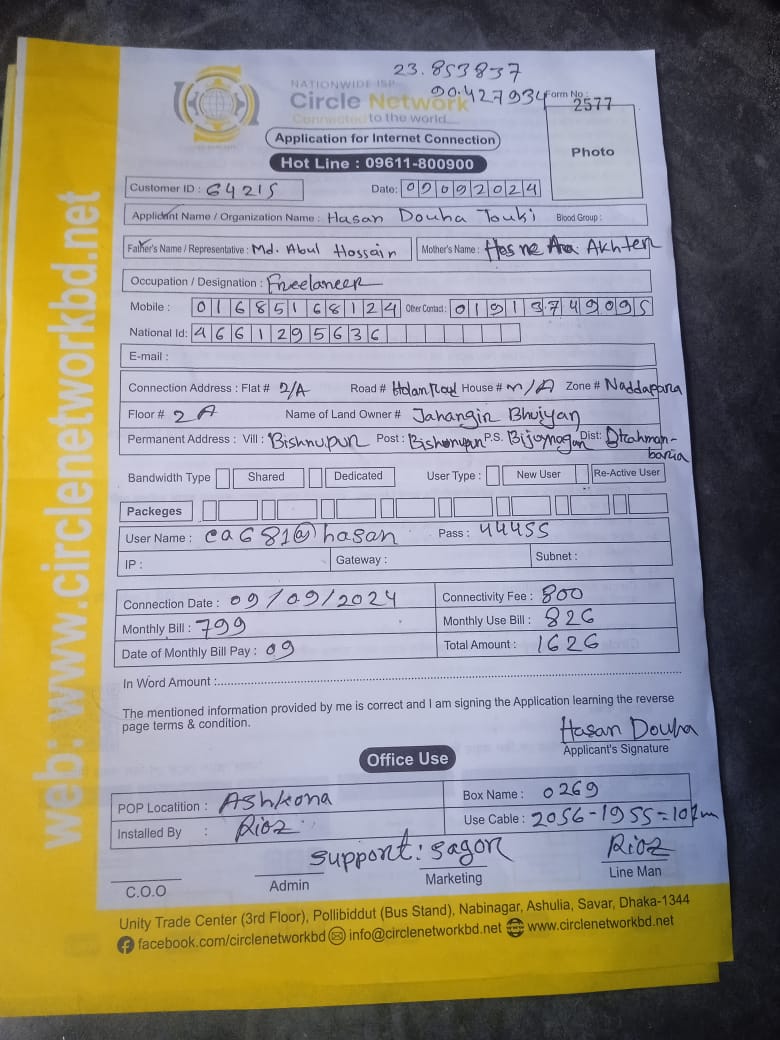 23.853837
90.427934
NATIONWIDE ISP
Circle Network
Connected to the world....
Form No :
2577
Application for Internet Connection
Photo
Hot Line : 09611-800900
Customer ID : 64215 Date: 09092024
Applicant Name / Organization Name : Hasan Douha Touki Blood Group :
Father's Name / Representative : Md. Abul Hossain Mother's Name : Hosne Ara Akhter
Occupation / Designation : Freelancer
Mobile : 01685168124 Other Contact : 01913749095
National Id: 4661295636
E-mail :
Connection Address : Flat # 2/A Road # Holan Road House # N/A Zone # Naddapara
Floor # 2A Name of Land Owner # Jahangir Bhuiyan
Permanent Address : Vill : Bishnupur Post : P.S. Bijoynagar Dist: Brahman-
baria
Bandwidth Type Shared Dedicated User Type : New User Re-Active User
Packeges
User Name : ca681@hasan Pass : 44455
IP : Gateway : Subnet :
Connection Date : 09/09/2024 Connectivity Fee : 800
Monthly Bill : 799 Monthly Use Bill : 826
Date of Monthly Bill Pay : 09 Total Amount : 1626
In Word Amount :
The mentioned information provided by me is correct and I am signing the Application learning the reverse
page terms & condition.
Hasan Douha
Applicant's Signature
Office Use
POP Locatition : Ashkona Box Name : 0269
Installed By : Rioz Use Cable : 2056-1955=101m
support: sagor Rioz
C.O.O Admin Marketing Line Man
Unity Trade Center (3rd Floor), Pollibiddut (Bus Stand), Nabinagar, Ashulia, Savar, Dhaka-1344
facebook.com/circlenetworkbd info@circlenetworkbd.net www.circlenetworkbd.net
web: www.circlenetworkbd.net